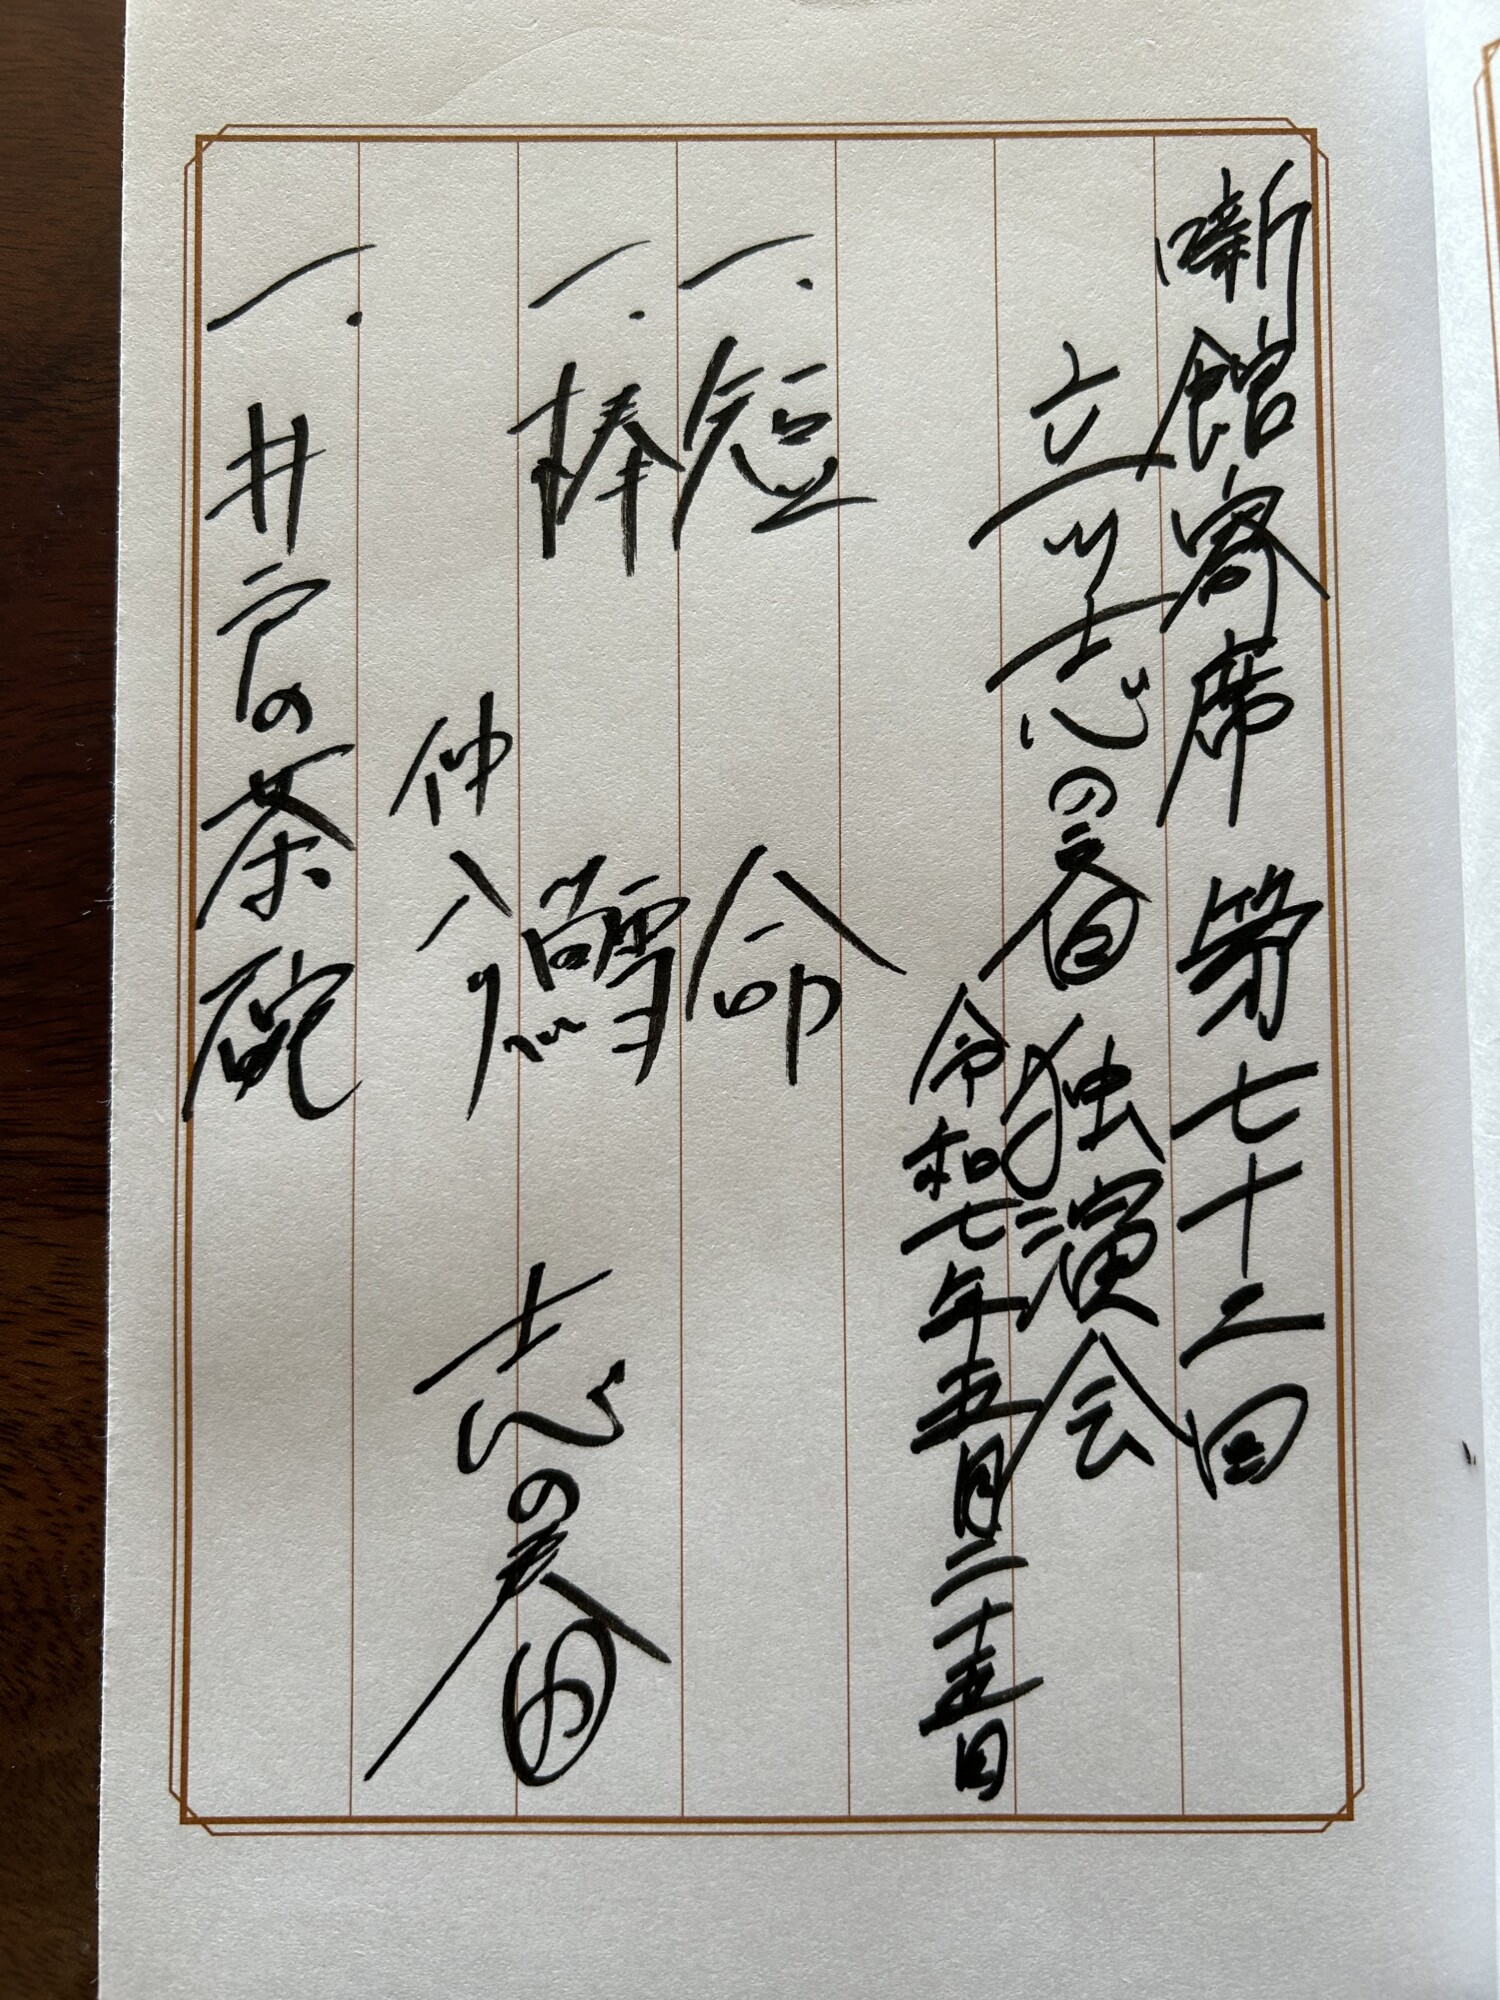 噺館寄席 第七十二回
立川志の春 独演会
令和七年五月二十五日
一. 短命
一. 棒鱈
仲入り
志の春
一. 井戸の茶碗